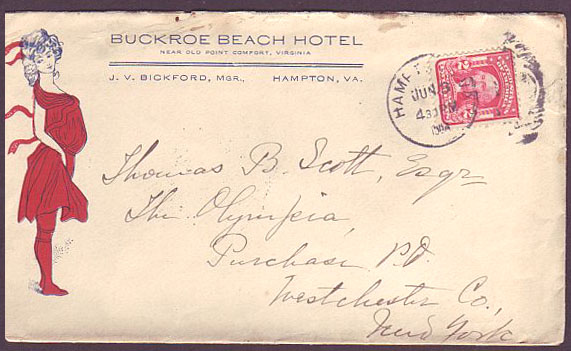 BUCKROE BEACH HOTEL
NEAR OLD POINT COMFORT, VIRGINIA
J. V. BICKFORD, MGR., HAMPTON, VA.
HAMP
JUN 5
4 30 PM
2
Thomas B. Scott, Esqr
The Olympia,
Purchase P.O.
Westchester Co,
New York